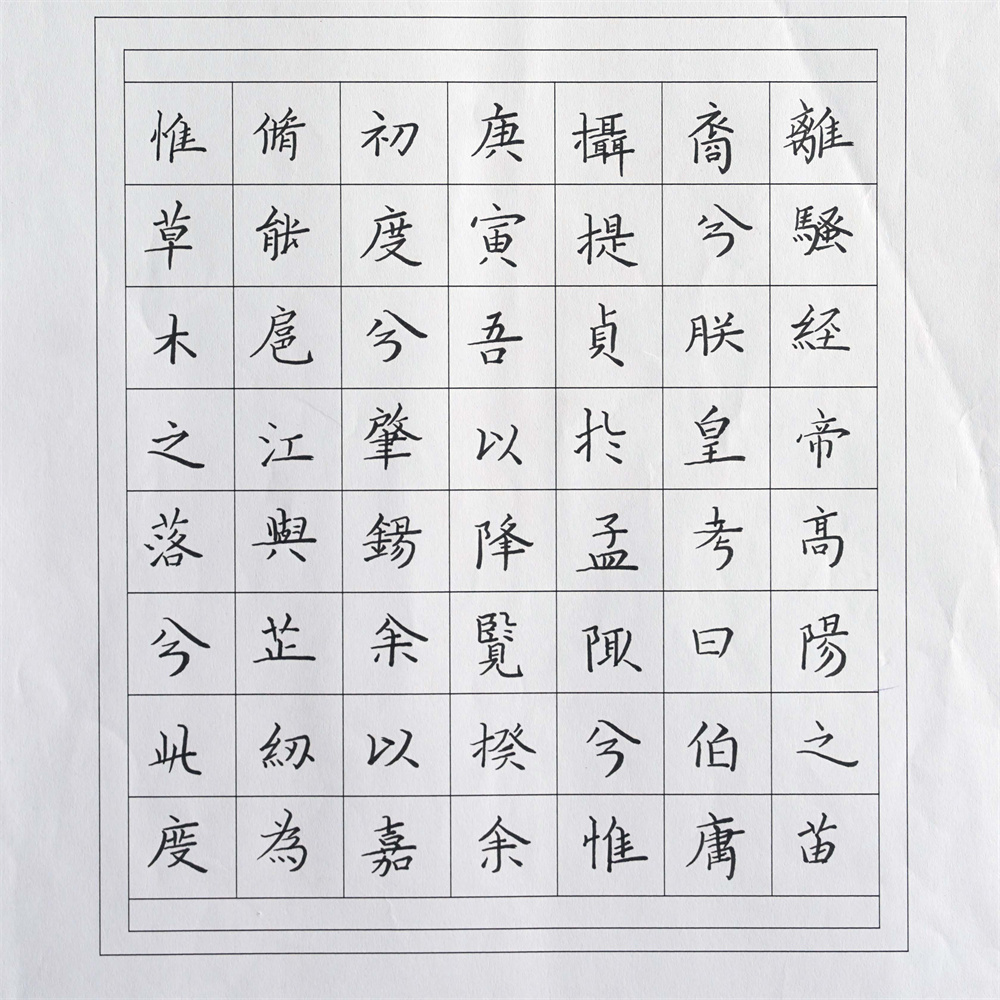 離騷経帝高陽之苗
裔兮朕皇考曰伯庸
攝提貞扵孟陬兮惟
庚寅吾以降覽揆余
初度兮肇錫余以嘉
脩能扈江與芷紉為
惟草木之落兮此度